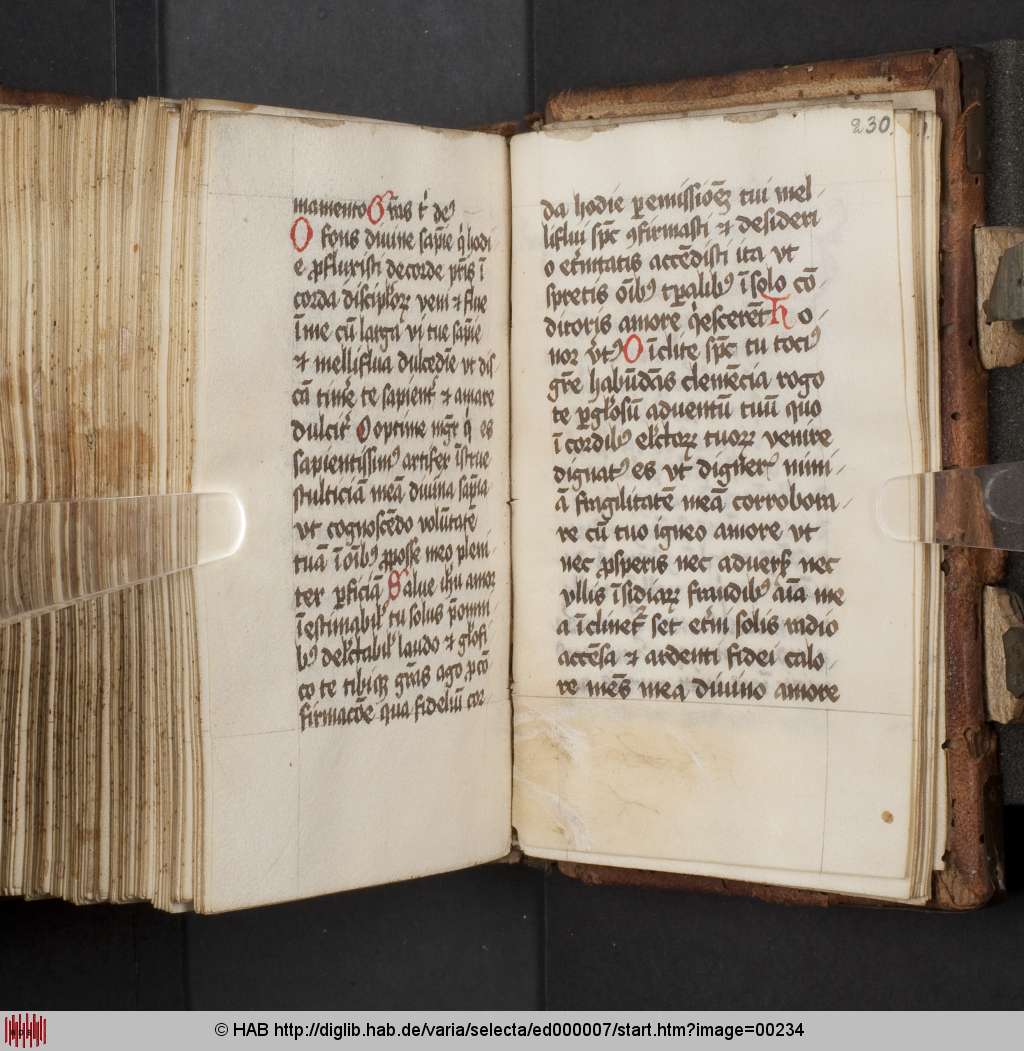 mamento Gr̄as t̉ de᷒
O fons diuine sapīe q̉ hodi
e ꝓfluxisti de corde pr̄is ī
corda discipl̉oꝝ veni ⁊ flue
ī me cū larga vi tue sapīe
⁊ melliflua dulcedīe vt dis
cā timẻ te sapient̉ ⁊ amare
dulcit̉ O optime mgr̄ q̉ es
sapientissim᷒ artifex īstrue
stulticiā meā diuina sapīa
vt cognoscēdo volūtatē
tuā ī oīb᷒ ꝓ posse meo pleni
ter ꝑficiā Salue ih̄u amor
īestimabil̉ tu solus p̄ omni
b᷒ delc̄tabil̉ laudo ⁊ glōfi
co te tibiqꝫ gr̄as ago ꝓ cō
firmacōe qua fideliū cor
230
da hodie ꝑ emissiōꝫ tui mel
liflui sp̄c ꝯfirmasti ⁊ desideri
o et̉nitatis accēdisti ita vt
spretis oīb᷒ tꝑalib᷒ ī solo cō
ditoris amore q̉escerēt h o
nor v̉t᷒ O īclite sp̄c tu toci᷒
gr̄e habūdās clemēcia rogo
te ꝑ gl̉osū aduentū tuū quo
ī cordib᷒ elc̄toꝝ tuoꝝ venire
dignat᷒ es vt dign̉er᷒ nimi
ā fragilitatē meā corrobora
re cū tuo igneo amore vt
nec ꝓsperis nec aduers̉ nec
vllis īsidiaꝝ fraudib᷒ aīa me
a īclinet᷑ set̉ et̉ni solis radio
accēsa ⁊ ardenti fidei calo
re mēs mea diuino amore
© HAB http://diglib.hab.de/varia/selecta/ed000007/start.htm?image=00234